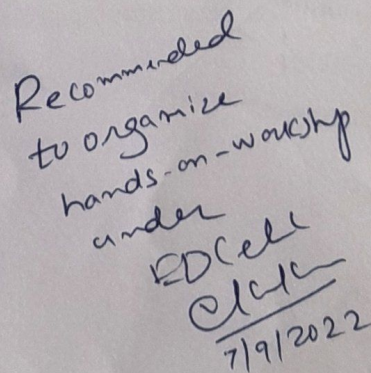 Recommended
to organize
hands-on-workshop
under
EDCell
7/9/2022